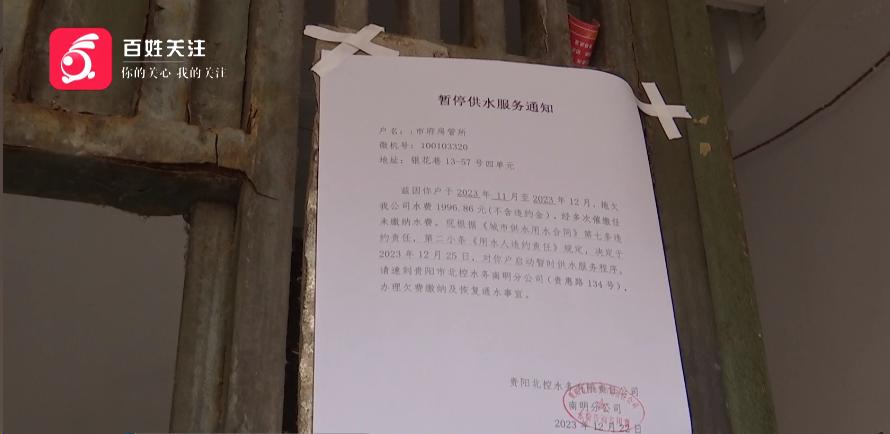 百姓关注
你的关心 我的关注
暂停供水服务通知
户名：:市府房管所
微机号：100103320
地址：银花巷 13-57 号四单元
兹因你户于 2023 年 11 月至 2023 年 12 月，拖欠
我公司水费 1996.86 元(不含违约金)，经多次催缴任
未缴纳水费。现根据《城市供水用水合同》第七条违
约责任，第二小条《用水人违约责任》规定，决定于
2023 年 12 月 25 日，对你户启动暂时供水服务程序。
请速到贵阳市北控水务南明分公司(贵惠路 134 号)，
办理欠费缴纳及恢复通水事宜。
贵阳北控水务有限责任公司
南明分公司
2023 年 12 月 22 日